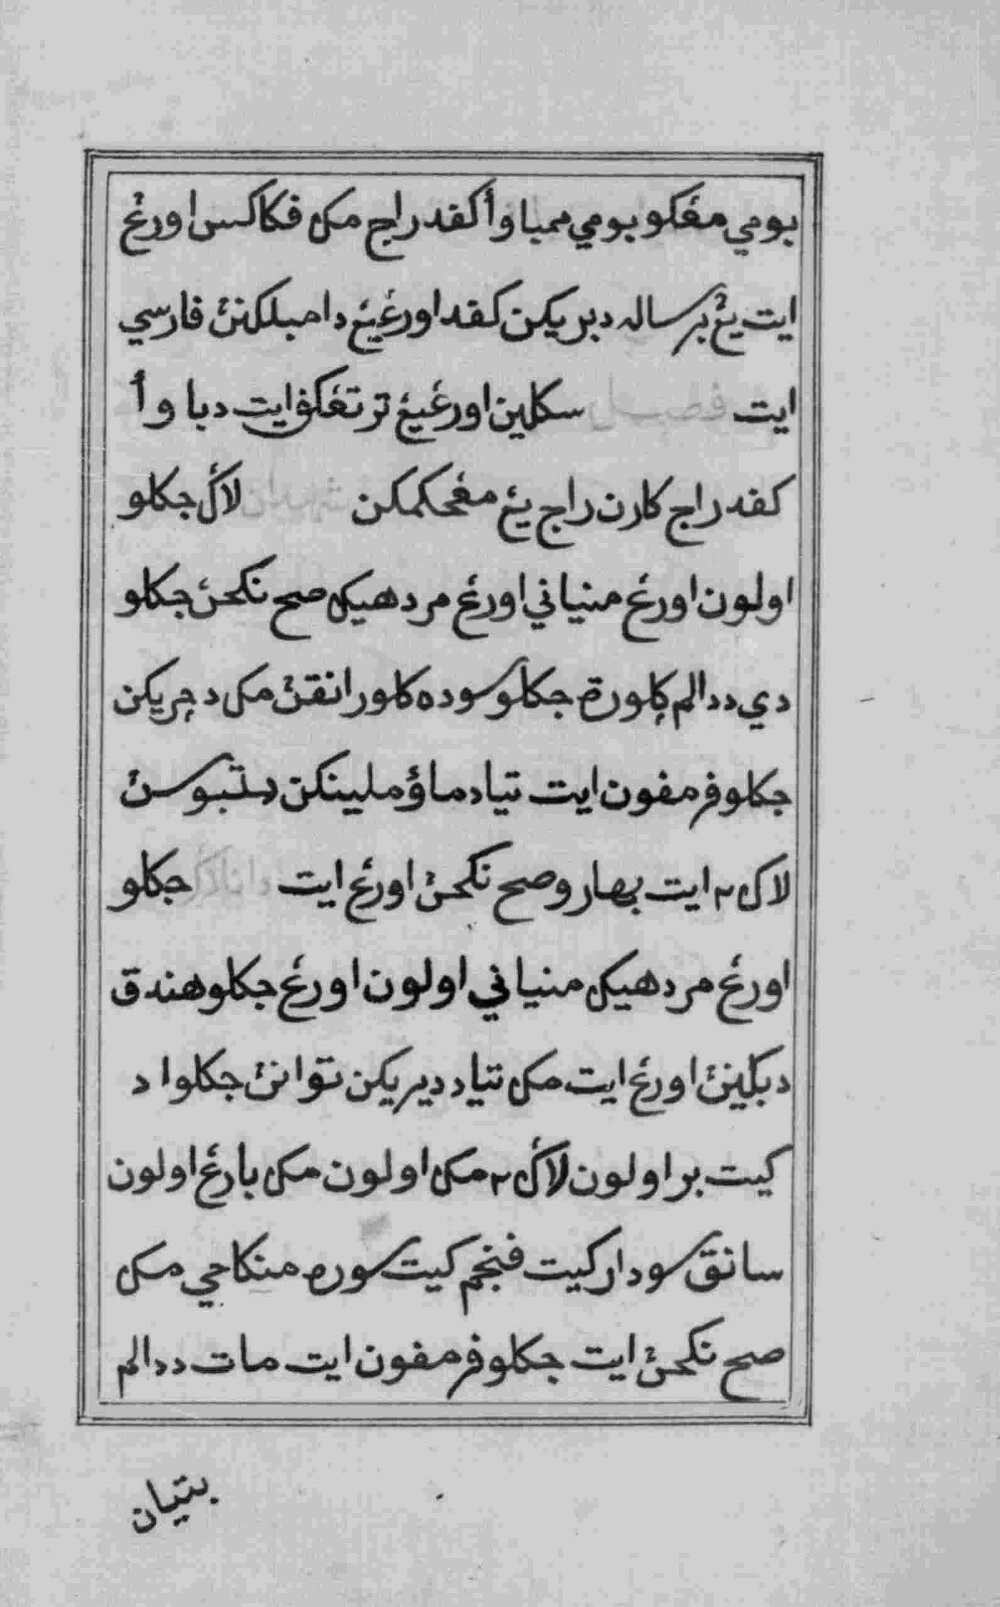 بومي مڠکو بومي ممباوأ کفد راج مک فکاکس اورڠ
ايت يڠ برساله دبريکن کفد اورڠ يڠ دامبلکنڽ فارسي
ايت فصل سکلين اورڠ يڠ ترتڠکف ايت دباوأ
کفد راج کارن راج يڠ مڠحکمکن لاکي جکلو
اولون اورڠ منياني اورڠ مردهيک صح نکحڽ جکلو
دي ددالم کلورة جکلو سوده کلور انقڽ مک دچريکن
جکلو فرمفون ايت تياد ماؤ ملينکن دتبوسڽ
لاکي٢ ايت بهارو صح نکحڽ اورڠ ايت جکلو
اورڠ مردهيک منياني اولون اورڠ جکلو هندق
دبلينڽ اورڠ ايت مک تياد ديبريکن توانڽ جکلو اد
کيت بر اولون لاکي٢ مک اولون مک بارڠ اولون
سانق سودار کيت فنجم کيت سوره منکاحي مک
صح نکحڽ ايت جکلو فرمفون ايت مات ددالم
بتيان